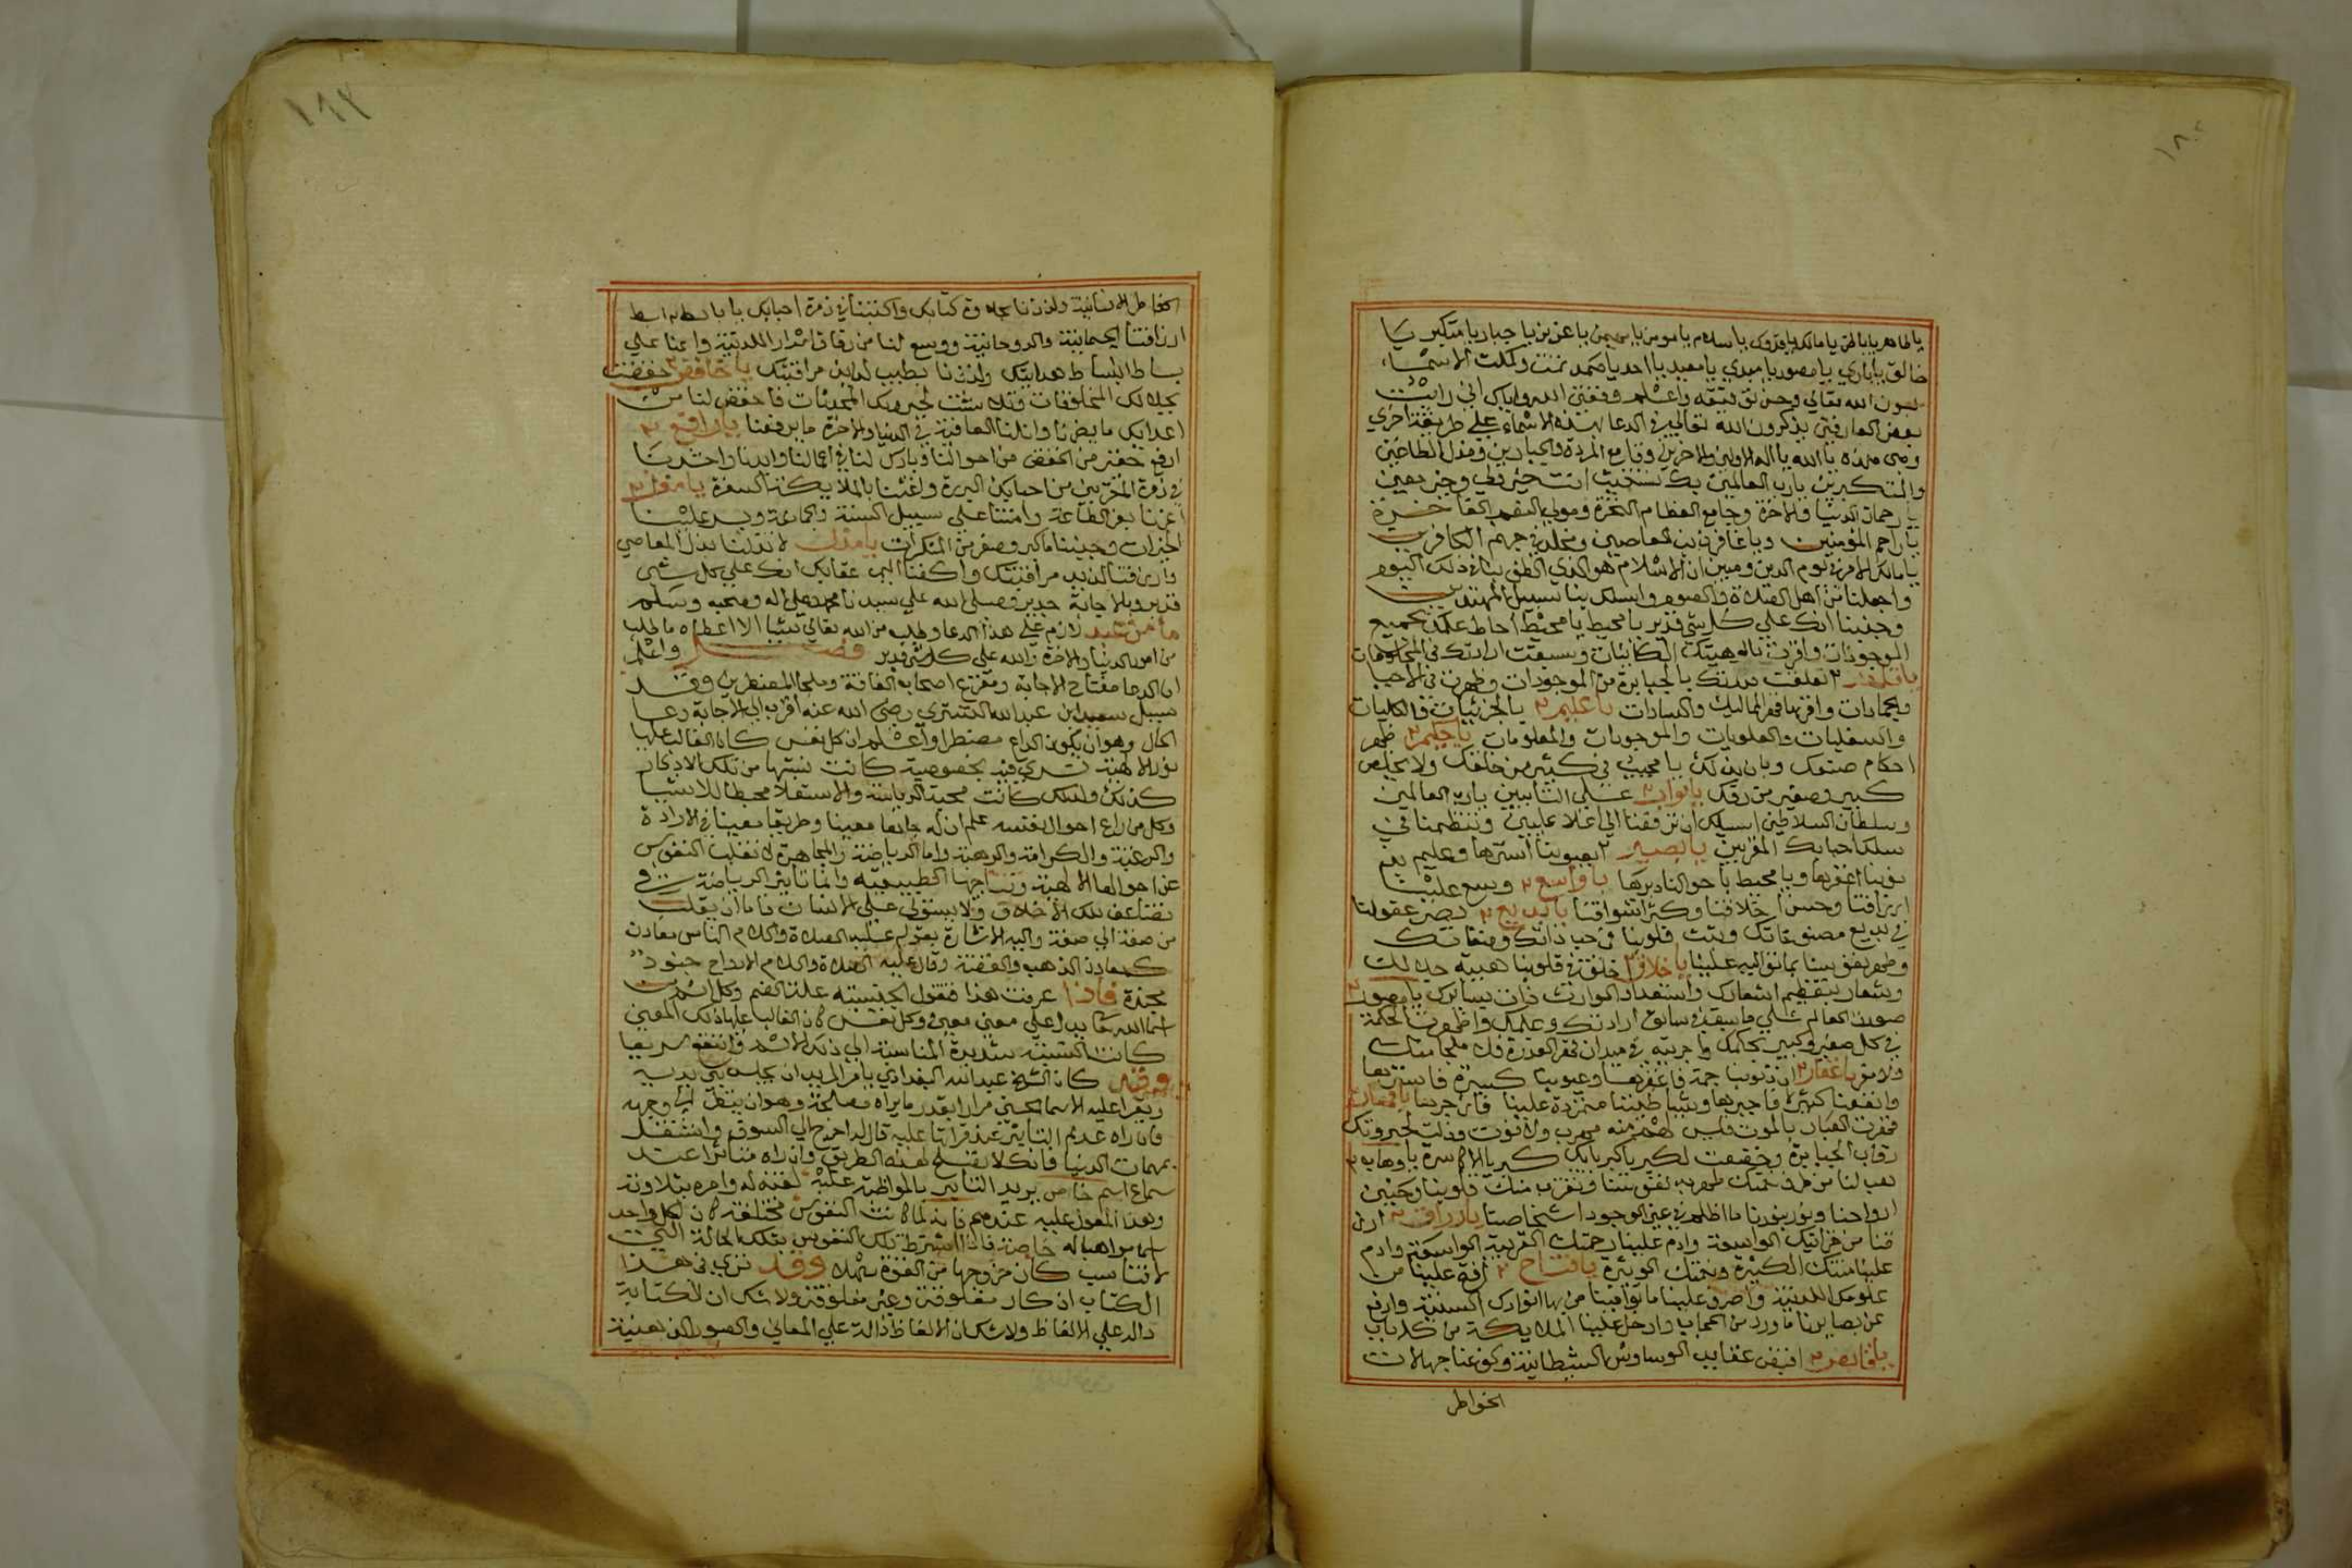 يا ظاهر يا باطن يا مالك يا قدوس يا سلام يا مومن يا مهيمن يا عزيز يا جبار يا متكبر يا
خالق يا باري يا مصور يا مبدي يا معيد يا احد يا صمد تمت وكملت الاسماء
بعون الله تعالي وحسن توفيقه واعلم وفقني الله واياك اني رايت
بعض العارفين يذكرون الله تعالي في الدعا بهذه الاسماء علي طريقة اخري
وهي هذه يا الله يا اله الاولين والاخرين وقامع المردة والجبارين ومذل الطاغين
والمتكبرين يا رب العالمين بك نستغيث انت خير ولي وخير معين
يا رحمان الدنيا والاخرة وجامع العظام النخرة ومولي النعم الفاخرة
يا راحم المؤمنين ويا غافر ذنب العاصين ومخلد في جهنم الكافرين
يا مالك الامر في يوم الدين ومبين ان الاسلام هو الذي
واجعلنا من اهل الصلاة والصوم واسلك بنا سبيل المهتدين
وجنبنا انك علي كل شي قدير يا محيط يا محيط احاط علمك بجميع
الموجودات واقرت بالوهيتك الكاينات وسبقت ارادتك في المخلوقات
تعلقت قدرتك بالجبابرة من الموجودات وظهرت في الاحيا
والجمادات واقرتها المماليك والسادات يا عليم ٢ بالجزئيات والكليات
والسفليات والعلويات والموجودات والمعلومات يا حكيم ٢ ظهر
احكام صنعك وبان بذلك يا مجيب في كثير من خلقك ولا يخلص
كبير وصغير من رزقك يا تواب ٢ علي التايبين يا رب العالمين
وسلطان السلاطين اسيلك ان ترفقنا الي اعلا عليين وتنظمنا في
سلك احبابك المقربين يا بصير ٢ بعيوبنا استرها وعليم
بذنوبنا اغفرها ويا محيط باحوالنا دبرها يا واسع ٢ وسع علينا
ارزاقنا وحسن اخلاقنا وكثر اشواقنا يا بديع ٢ بصر عقولنا
في بديع مصنوعاتك وثبت قلوبنا في حب ذاتك وصفاتك
وطهر نفوسنا بما تواليه علينا يا خلاق ٢ خلقت في قلوبنا هيبة جلالك
وشعار بتعظيم اشعارك واستعداد الوارث يا مصور ٢
صورت العالم علي ما سبق في سابق ارادتك وعلمك واظهرت الحكمة
في كل صغير وكبير بحكمك واجريته في ميدان قهر القدرة
يا غفار ٢ ان ذنوبنا جمة فاغفرها وعيوبنا كثيرة فاسترها
وانفسنا كسيرة فاجبرها وشياطيننا متمردة علينا فازجرها يا قهار ٢
قهرت العباد بالموت فليس لهم منه مهرب ولا فوت وذلت لجبروتك
رقاب الجبابرة وخضعت لكبريايك كبريا الاكاسرة يا وهاب ٢
هب لنا من طرف نعمتك ما تطهر به نفوسنا وتقرب منك قلوبنا وتحيي
ارواحنا ونور بنورنا ما اظلم في عين الوجود اشخاصنا يا رزاق ٢ ارز
قنا من خزاينك الواسعة وادم علينا رحمتك القريبة الواسعة وادم
علينا منتك الكبيرة ونعمتك الوثيرة يا فتاح ٢ افتح علينا من
علومك اللدنية واصرف علينا ما توافينا من بها انوارك السنية وارفع
عن بصايرنا ما ورد من الحجاب وادخل علينا الملايكة من كل باب
يا قابض ٢ اقبض عنا الوساوس الشيطانية وكف عنا جهالات
الخواطر
الخواطر الانسانية ولذذنا بتلاوة كتابك واكتبنا في زمرة احبابك يا باسط ٢ ابسط
ارزاقنا الجسمانية والروحانية ووسع لنا من رقايق اسرار اللدنية واعنا علي
بساط البساط هدايتك ولذذنا بطيب لذايذ مرافقتك يا خافض ٢ خفضت
بجلالك المخلوقات وتلاشت لجبروتك المحدثات فاخفض لنا من
اعدايك ما يضرنا وانلنا العافية في الدنيا والاخرة ما يرفعنا يا رافع ٢
ارفع حقير من انخفض من احوالنا وبارك لنا في اعمالنا وايدنا واحشرنا
في زمرة المقربين من احبابك البررة واغثنا بالملايكة السفرة يا معز ٢
اعزنا بعز الطاعة وامتنا علي سبيل السنة والجماعة ويسر علينا
الخيرات وجنبنا ما كبر وصغر من المنكرات يا مذل لا تذلنا بذل المعاصي
وارزقنا لذيذ مرافقتك واكفنا اليم عقابك انك علي كل شي
قدير وبالاجابة جدير وصلي الله علي سيدنا محمد وعلي اله وصحبه وسلم
ما من عبد لازم علي هذا الدعا وطلب من الله تعالي شيا الا اعطاه ما طلب
من امور الدنيا والاخرة والله علي كل شي قدير فصل واعلم
ان الدعا مفتاح الاجابة ومفزع اصحاب الفاقة وملجا المضطرين وقد
سيل سهيل ابن عبد الله التستري رضي الله عنه اقرب الي الاجابة دعا
الحال وهو ان يكون الداع مضطرا واعلم ان كل نفس كان الغالب عليها
نور الالهية
كذلك ولذلك كانت محبة الرياسة والاستعلا محيطا للاشيا
وكل من راع احوال نفسه علم ان له جانبا معينا وطريقا معينا في الارادة
والرغبة والكرامة والرهبة واما الرياضة والمجاهدة لا تقلب النفوس
عن احوالها الالهية ومناجها الطبيعية وانما تاثير الرياضة في
تضاعف تلك الاخلاق ولا يستولي علي الانسان فاما ان يقلب
من صفة الي صفة واليه الاشارة بقوله عليه الصلاة والسلام الناس معادن
كمعادن الذهب والفضة وقال عليه الصلاة والسلام الارواح جنود
مجندة فاذا عرفت هذا فنقول الجنسية علة الضم وكل اسم من
اسما الله تعالي يدل علي معني معين وكل نفس كان الغالب عليها ذلك المعني
كانت النسبة شديدة المناسبة الي ذلك الاسم وانتفع سريعا
وقد كان الشيخ عبد الله البغدادي يامر المريد ان يجلس بين يديه
ويقرا عليه الاسما الحسني مرارا بقدر ما يراه مصلحة وهو ان ينظر الي وجهه
فان راه عديم التاثير عند قراتها عليه قال له اخرج الي السوق واشتغل
بمهمات الدنيا فانك لا تصلح لهذه الطريق وان راه متاثرا عند
سماع اسم خاص يريد التاثير بالمواظبة عليه لقنه له وامره بتلاوته
وهذا المعول عليه عندهم فانه لما كانت النفوس مختلفة كان لكل واحد
خاصة
لا تناسب كان خروجها من القوة سهلا وقد نري في هذا
الكتاب ان كان مغلوقة وغير مغلوقة ولا شك ان الكتابة
دالة علي الالفاظ ولا شك ان الالفاظ دالة علي المعاني والصور الذهنية